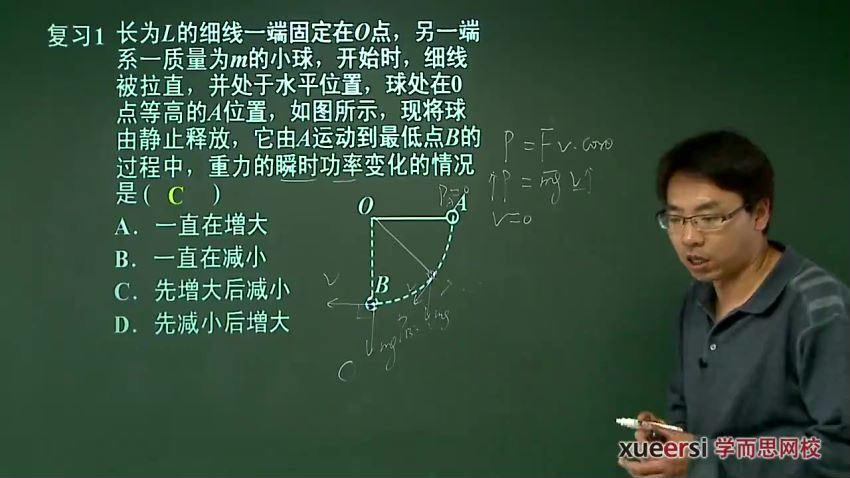 复习1 长为L的细线一端固定在O点，另一端
系一质量为m的小球，开始时，细线
被拉直，并处于水平位置，球处在0
点等高的A位置，如图所示，现将球
由静止释放，它由A运动到最低点B的
过程中，重力的瞬时功率变化的情况
是( C )
A．一直在增大
B．一直在减小
C．先增大后减小
D．先减小后增大
O
A
B
P_A=0
v
mg
mg
C
P=Fv·cosθ
↑P=mgv↑
v=0
xueersi 学而思网校